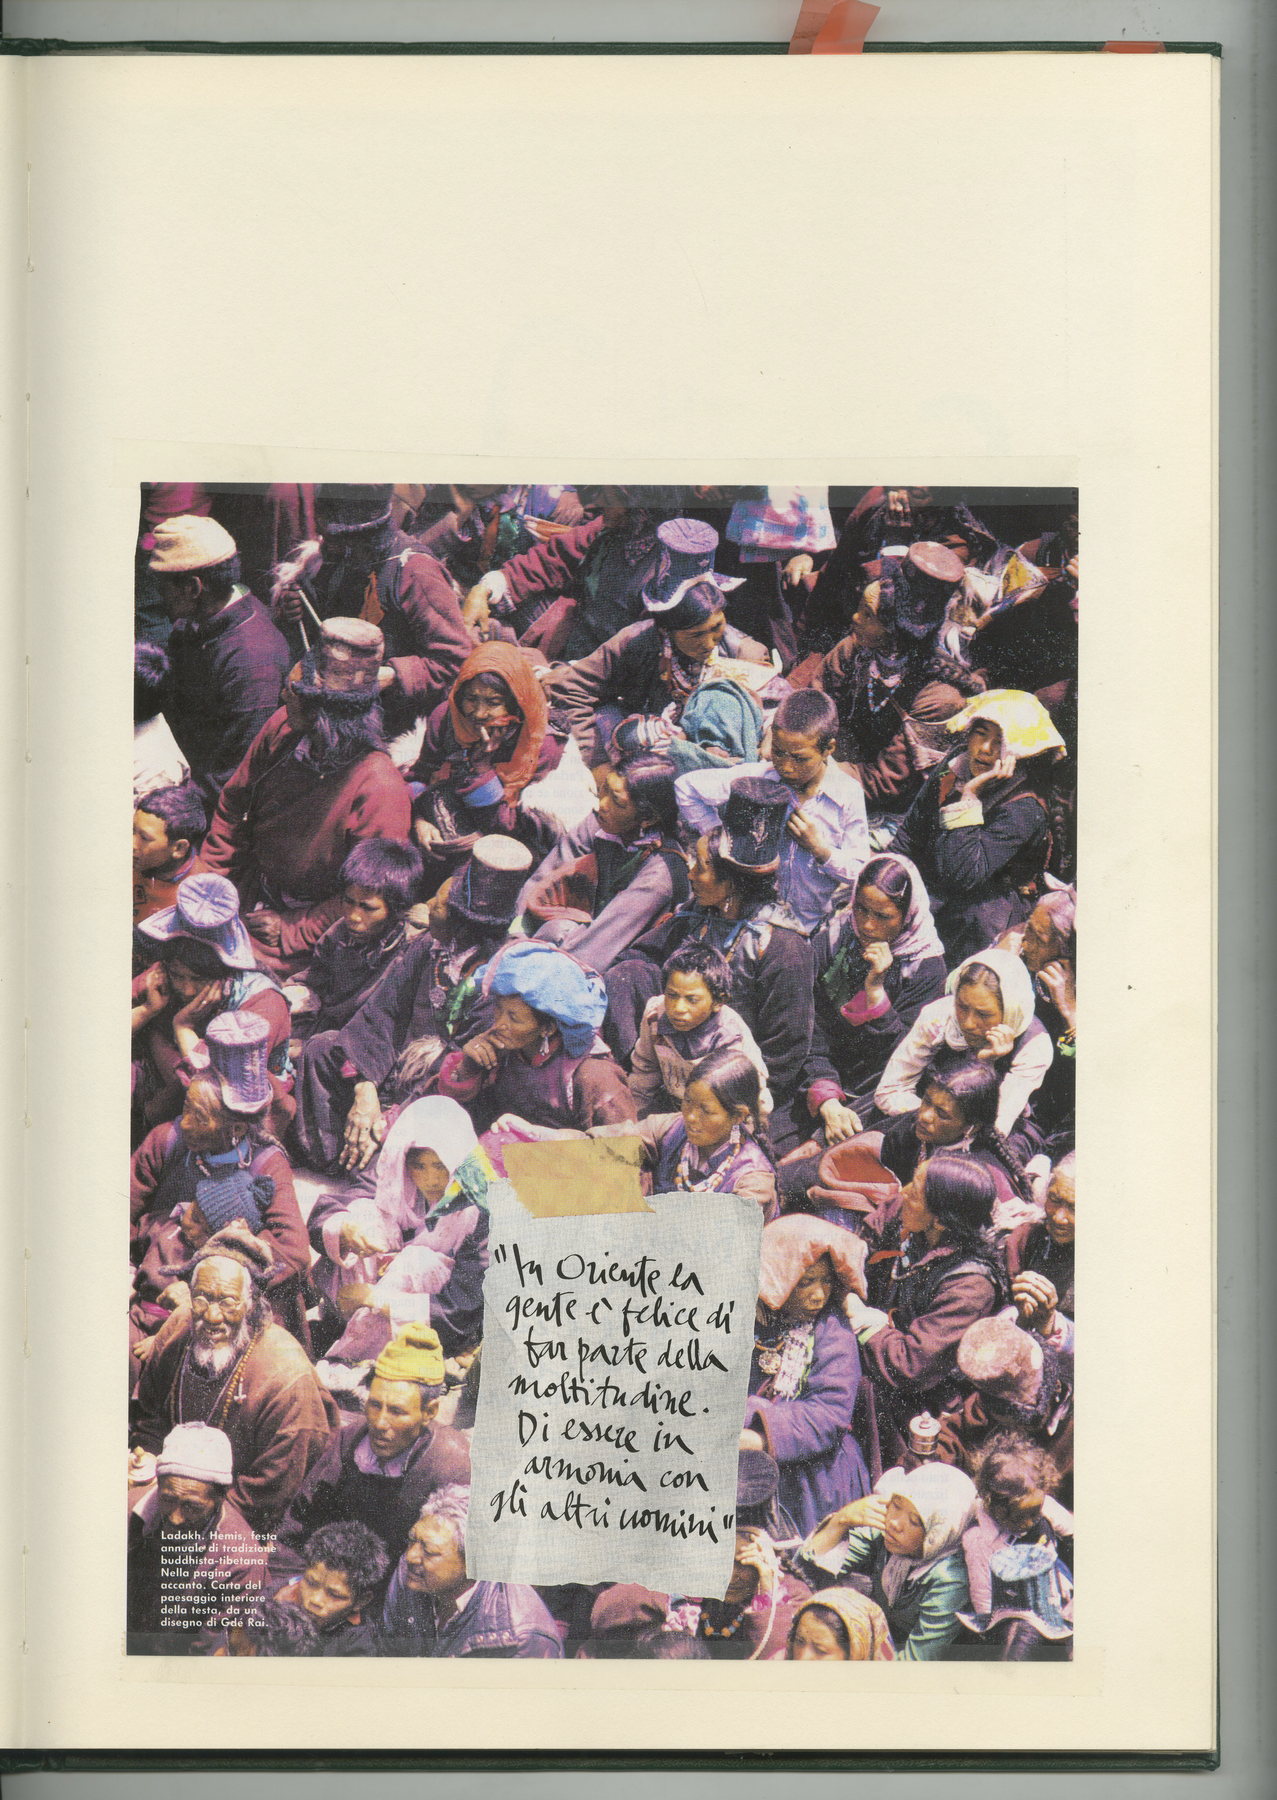 "In Oriente la
gente è felice di
far parte della
moltitudine.
Di essere in
armonia con
gli altri uomini"
Ladakh. Hemis, festa
annuale di tradizione
buddhista-tibetana.
Nella pagina
accanto. Carta del
paesaggio interiore
della testa, da un
disegno di Gdé Rai.